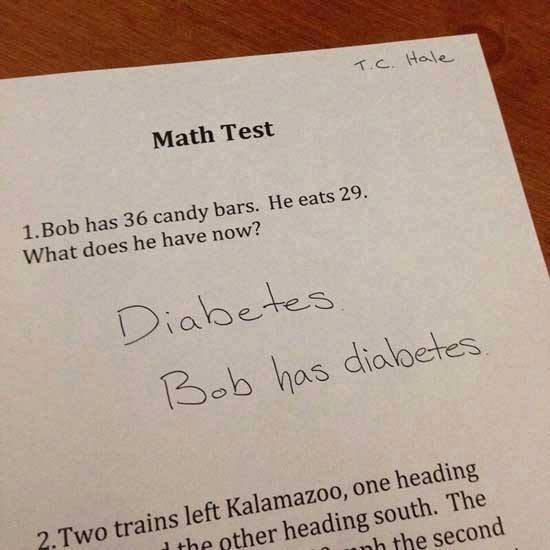 T.C. Hale
Math Test
1.Bob has 36 candy bars. He eats 29.
What does he have now?
Diabetes.
Bob has diabetes.
2.Two trains left Kalamazoo, one heading
the other heading south. The
mph the second